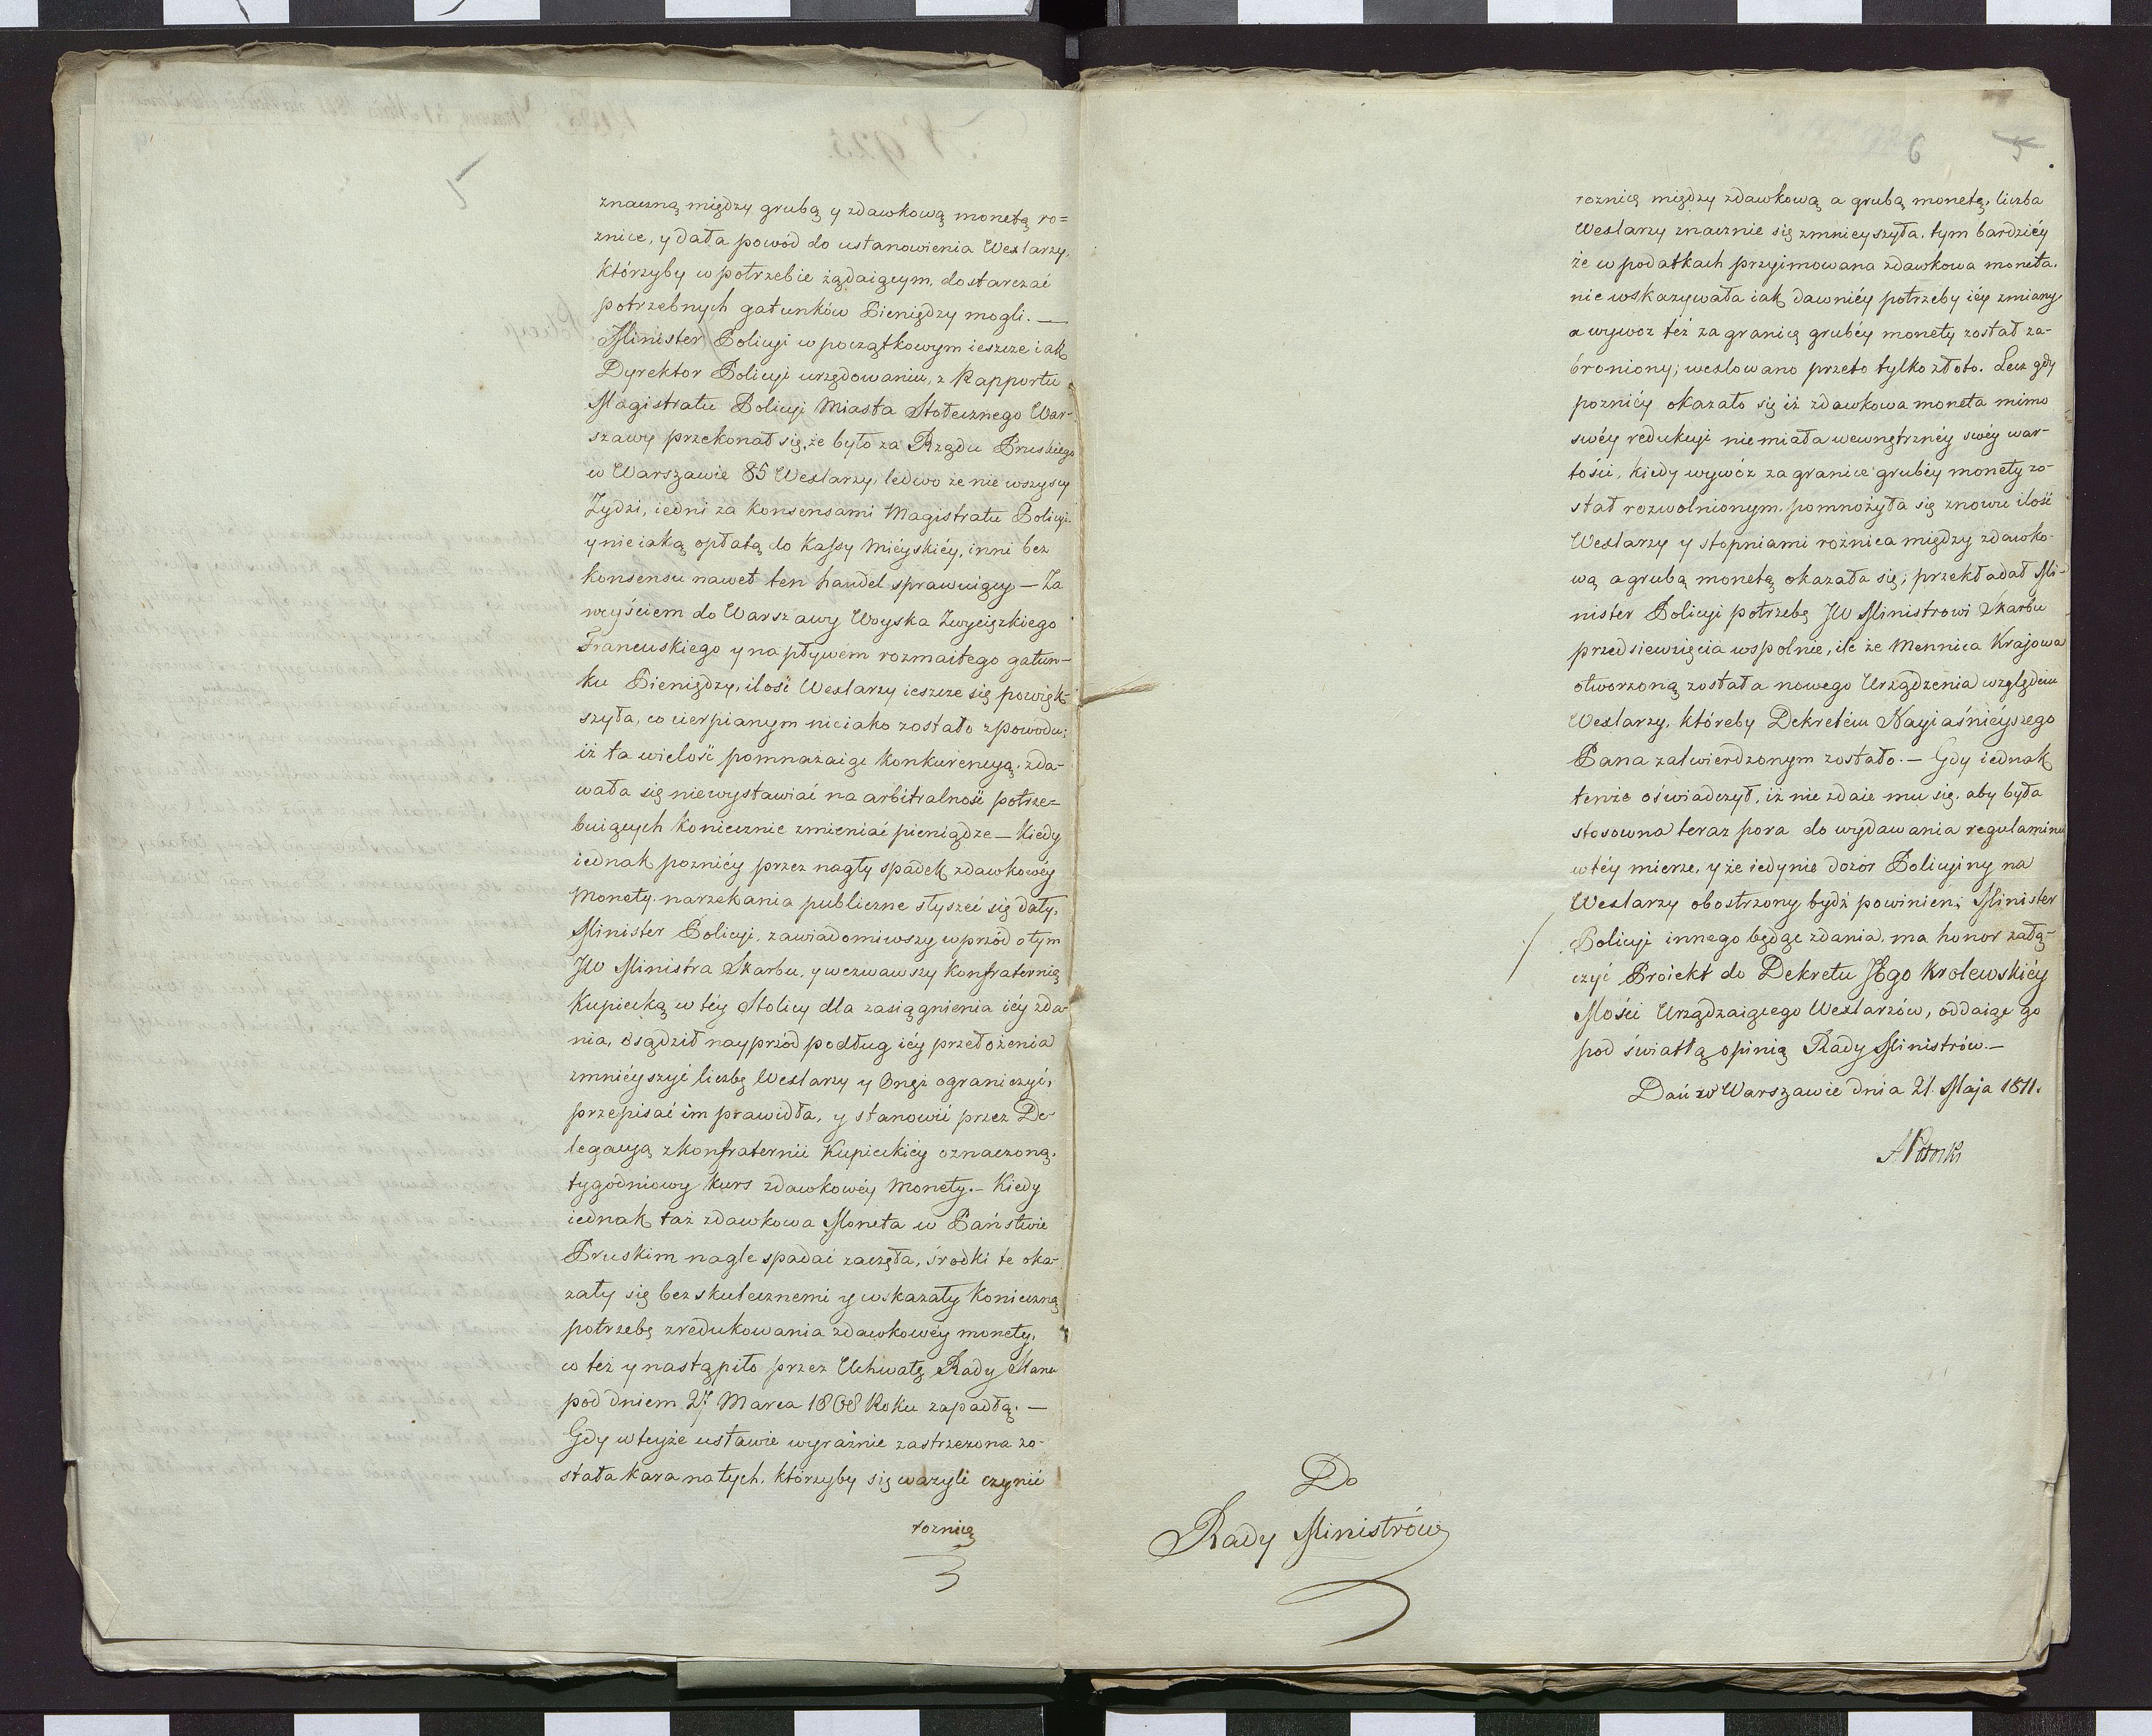 5
znaczną między grubą y zdawkową monetą ro=
znice, y dała powód do ustanowienia Wexlarzy,
którzyby w potrzebie żądaiącym, dostarczać
potrzebnych gatunków Pieniędzy mogli. —
Minister Policyi w początkowym ieszcze iak
Dyrektor Policyi urzędowaniu, z Rapportu
Magistratu Policyi Miasta Stołecznego War-
szawy przekonał się, że było za Rządu Pruskiego
w Warszawie 85 Wexlarzy, ledwo że nie wszyscy
Żydzi, iedni za konsensami Magistratu Policyi
y nieiaką opłatą do Kassy Mieyskiéy, inni bez
konsensu nawet ten handel sprawuiący — Za
weyściem do Warszawy Woyska Zwycięzkiego
Francuskiego y napływem rozmaitego gatun-
ku Pieniędzy, ilość Wexlarzy ieszcze się powięk-
szyła, co cierpianym nieiako zostało z powodu:
iż ta wielość pomnażaiąc konkurencyą, zda-
wała się niewystawiać na arbitralność potrze=
buiących koniecznie zmieniać pieniądze — Kiedy
iednak poznićy przez nagły spadek zdawkowéy
Monety narzekania publiczne słyszeć się dały,
Minister Policyi, zawiadomiwszy wprzód o tym
JW Ministra Skarbu, y wezwawszy Konfraternią
Kupiecką w téy Stolicy dla zasiągnienia iéy zda-
nia, osądził nayprzód podług iéy przełożenia
zmnieyszyć liczbę Wexlarzy y Onęż ograniczyć,
przepisać im prawidła, y stanowić przez De-
legacyą z Konfraternii Kupieckiéy oznaczoną,
tygodniowy kurs zdawkowéy Monety. — Kiedy
iednak taż zdawkowa Moneta w Państwie
Pruskim nagle spadać zaczęła, środki te oka-
zały się bezskutecznemi y wskazały konieczną
potrzebę zredukowania zdawkowéy monety,
co też y nastąpiło przez Uchwałę Rady Stanu
pod dniem 27 Marca 1808 Roku zapadłą. —
Gdy w teyże ustawie wyraźnie zastrzeżona zo-
stała kara na tych, którzyby się ważyli czynić
roznicę
6 5
roznicę między zdawkową a grubą monetą, liczba
Wexlarzy znacznie się zmnieyszyła, tym bardziéy
że w podatkach przyimowana zdawkowa moneta,
nie wskazywała iak dawniéy potrzeby iéy zmiany,
a wywoz też za granicę grubéy monety został za-
broniony; wexlowano przeto tylko złoto. Lecz gdy
poznićy okazało się iż zdawkowa moneta mimo
swéy redukcyi nie miała wewnętrznéy swéy war-
tości, kiedy wywóz za granicę grubéy monety zo-
stał rozwolnionym, pomnożyła się znowu ilość
Wexlarzy y stopniami roznica między zdawko-
wą a grubą monetą okazała się; przekładał Mi-
nister Policyi potrzebę JW Ministrowi Skarbu
przedsiewzięcia wspolnie, ile że Mennica Krajowa
otworzoną została nowego Urządzenia względem
Wexlarzy, któreby Dekretém Nayiaśniéyszego
Pana zatwierdzonym zostało. — Gdy iednak
tenże oświadczył, iż nie zdaie mu się, aby była
stosowna teraz pora do wydawania regulaminu
w téy mierze, y że iedynie dozór Policyiny na
Wexlarzy obostrzony bydź powinien; Minister
Policyi innego będąc zdania, ma honor załą-
czyć Proiekt do Dekretu JEgo Krolewskiéy
Mości Urządzaiącego Wexlarzów, oddaiąc go
pod światłą opinią Rady Ministrów. —
Dań w Warszawie dnia 21. Maja 1811.
APotocki
Do
Rady Ministrów